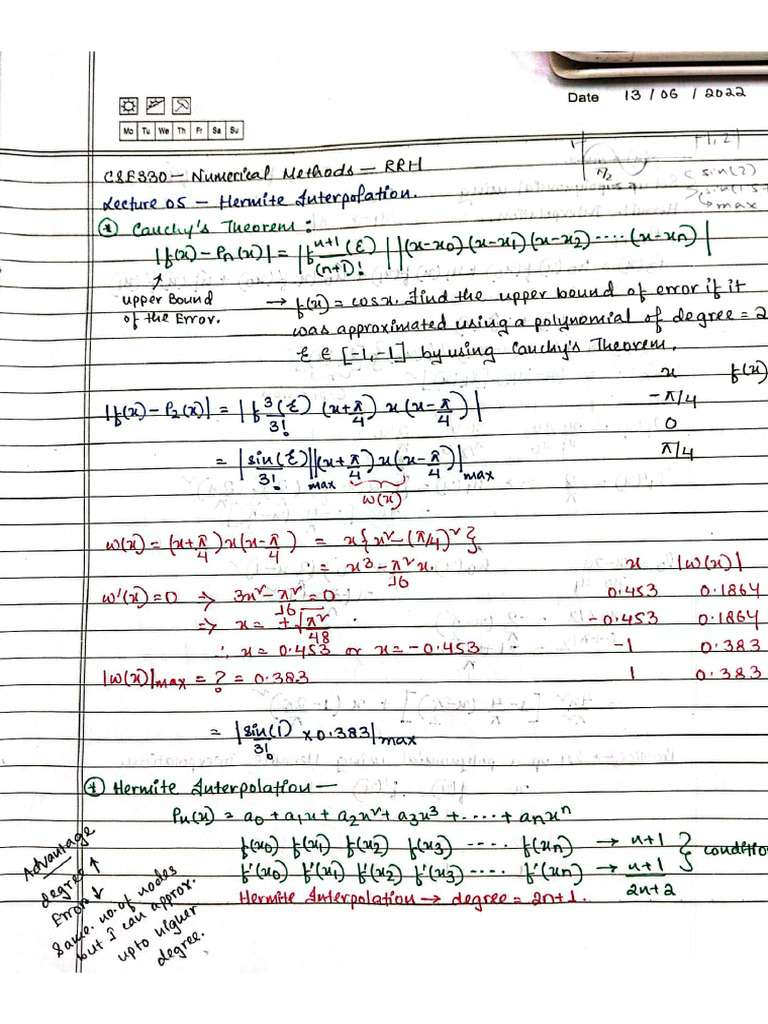 Date 13/06/2022
Mo Tu We Th Fr Sa Su
CSE330 - Numerical Methods - RRH
Lecture 05 - Hermite Interpolation.
* Cauchy's Theorem:
|f(x) - Pn(x)| = |f^{n+1}(ξ)/(n+1)!| |(x-x0)(x-x1)(x-x2).....(x-xn)|
Upper Bound
of the Error.
→ f(x) = cosx. Find the upper bound of error if it
was approximated using a polynomial of degree = 2
ξ ∈ [-1,-1] by using Cauchy's Theorem.
x f(x)
-π/4
0
π/4
|f(x) - P2(x)| = |f^3(ξ)/3! (x+π/4) x (x-π/4)|
= |sin(ξ)/3!|max |(x+π/4) x (x-π/4)|max
w(x)
w(x) = (x+π/4) x (x-π/4) = x{x² - (π/4)²}
= x³ - π²/16 x.
w'(x) = 0 ⇒ 3x² - π²/16 = 0
⇒ x = ±√(π²/48)
∴ x = 0.453 or x = -0.453
|w(x)|max = ? = 0.383
x |w(x)|
0.453 0.1864
-0.453 0.1864
-1 0.383
1 0.383
= |sin(1)/3! × 0.383|max
* Hermite Interpolation -
Pn(x) = a0 + a1x + a2x² + a3x³ + ..... + anxⁿ
f(x0) f(x1) f(x2) f(x3) ---- f(xn) → n+1
f'(x0) f'(x1) f'(x2) f'(x3) ---- f'(xn) → n+1
} conditio
2n+2
Hermite Interpolation → degree = 2n+1.
Advantage
degree ↑
Error ↓
Same no. of nodes
but I can approx.
upto higher
degree.
π/2
sin(2)
max